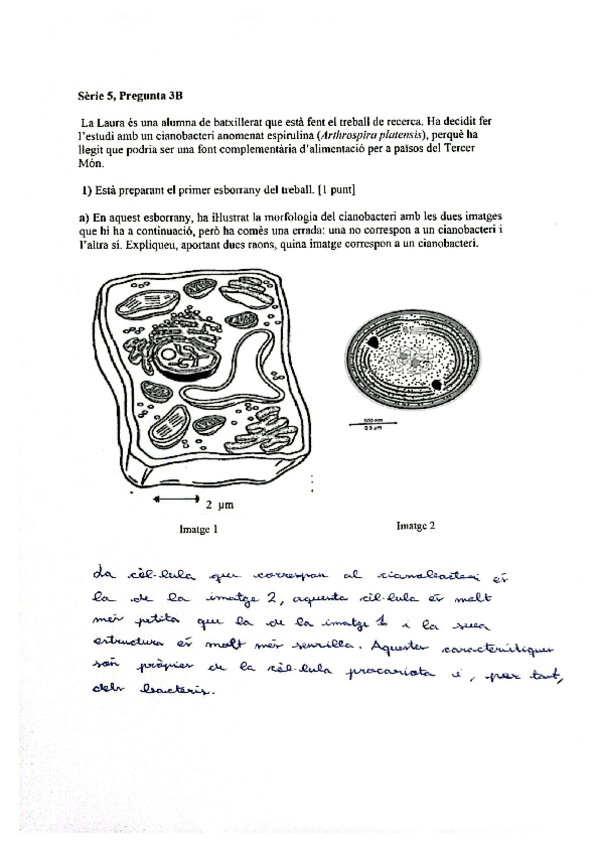 Sèrie 5, Pregunta 3B
La Laura és una alumna de batxillerat que està fent el treball de recerca. Ha decidit fer
l'estudi amb un cianobacteri anomenat espirulina (Arthrospira platensis), perquè ha
llegit que podria ser una font complementària d'alimentació per a països del Tercer
Món.
1) Està preparant el primer esborrany del treball. [1 punt]
a) En aquest esborrany, ha il·lustrat la morfologia del cianobacteri amb les dues imatges
que hi ha a continuació, però ha comès una errada: una no correspon a un cianobacteri i
l'altra sí. Expliqueu, aportant dues raons, quina imatge correspon a un cianobacteri.
500 nm
0.5 µm
2 µm
Imatge 1
Imatge 2
La cèl·lula que correspon al cianobacteri és
la de la imatge 2, aquesta cèl·lula és molt
més petita que la de la imatge 1 i la seva
estructura és molt més senzilla. Aquestes característiques
són pròpies de la cèl·lula procariota i, per tant,
dels bacteris.